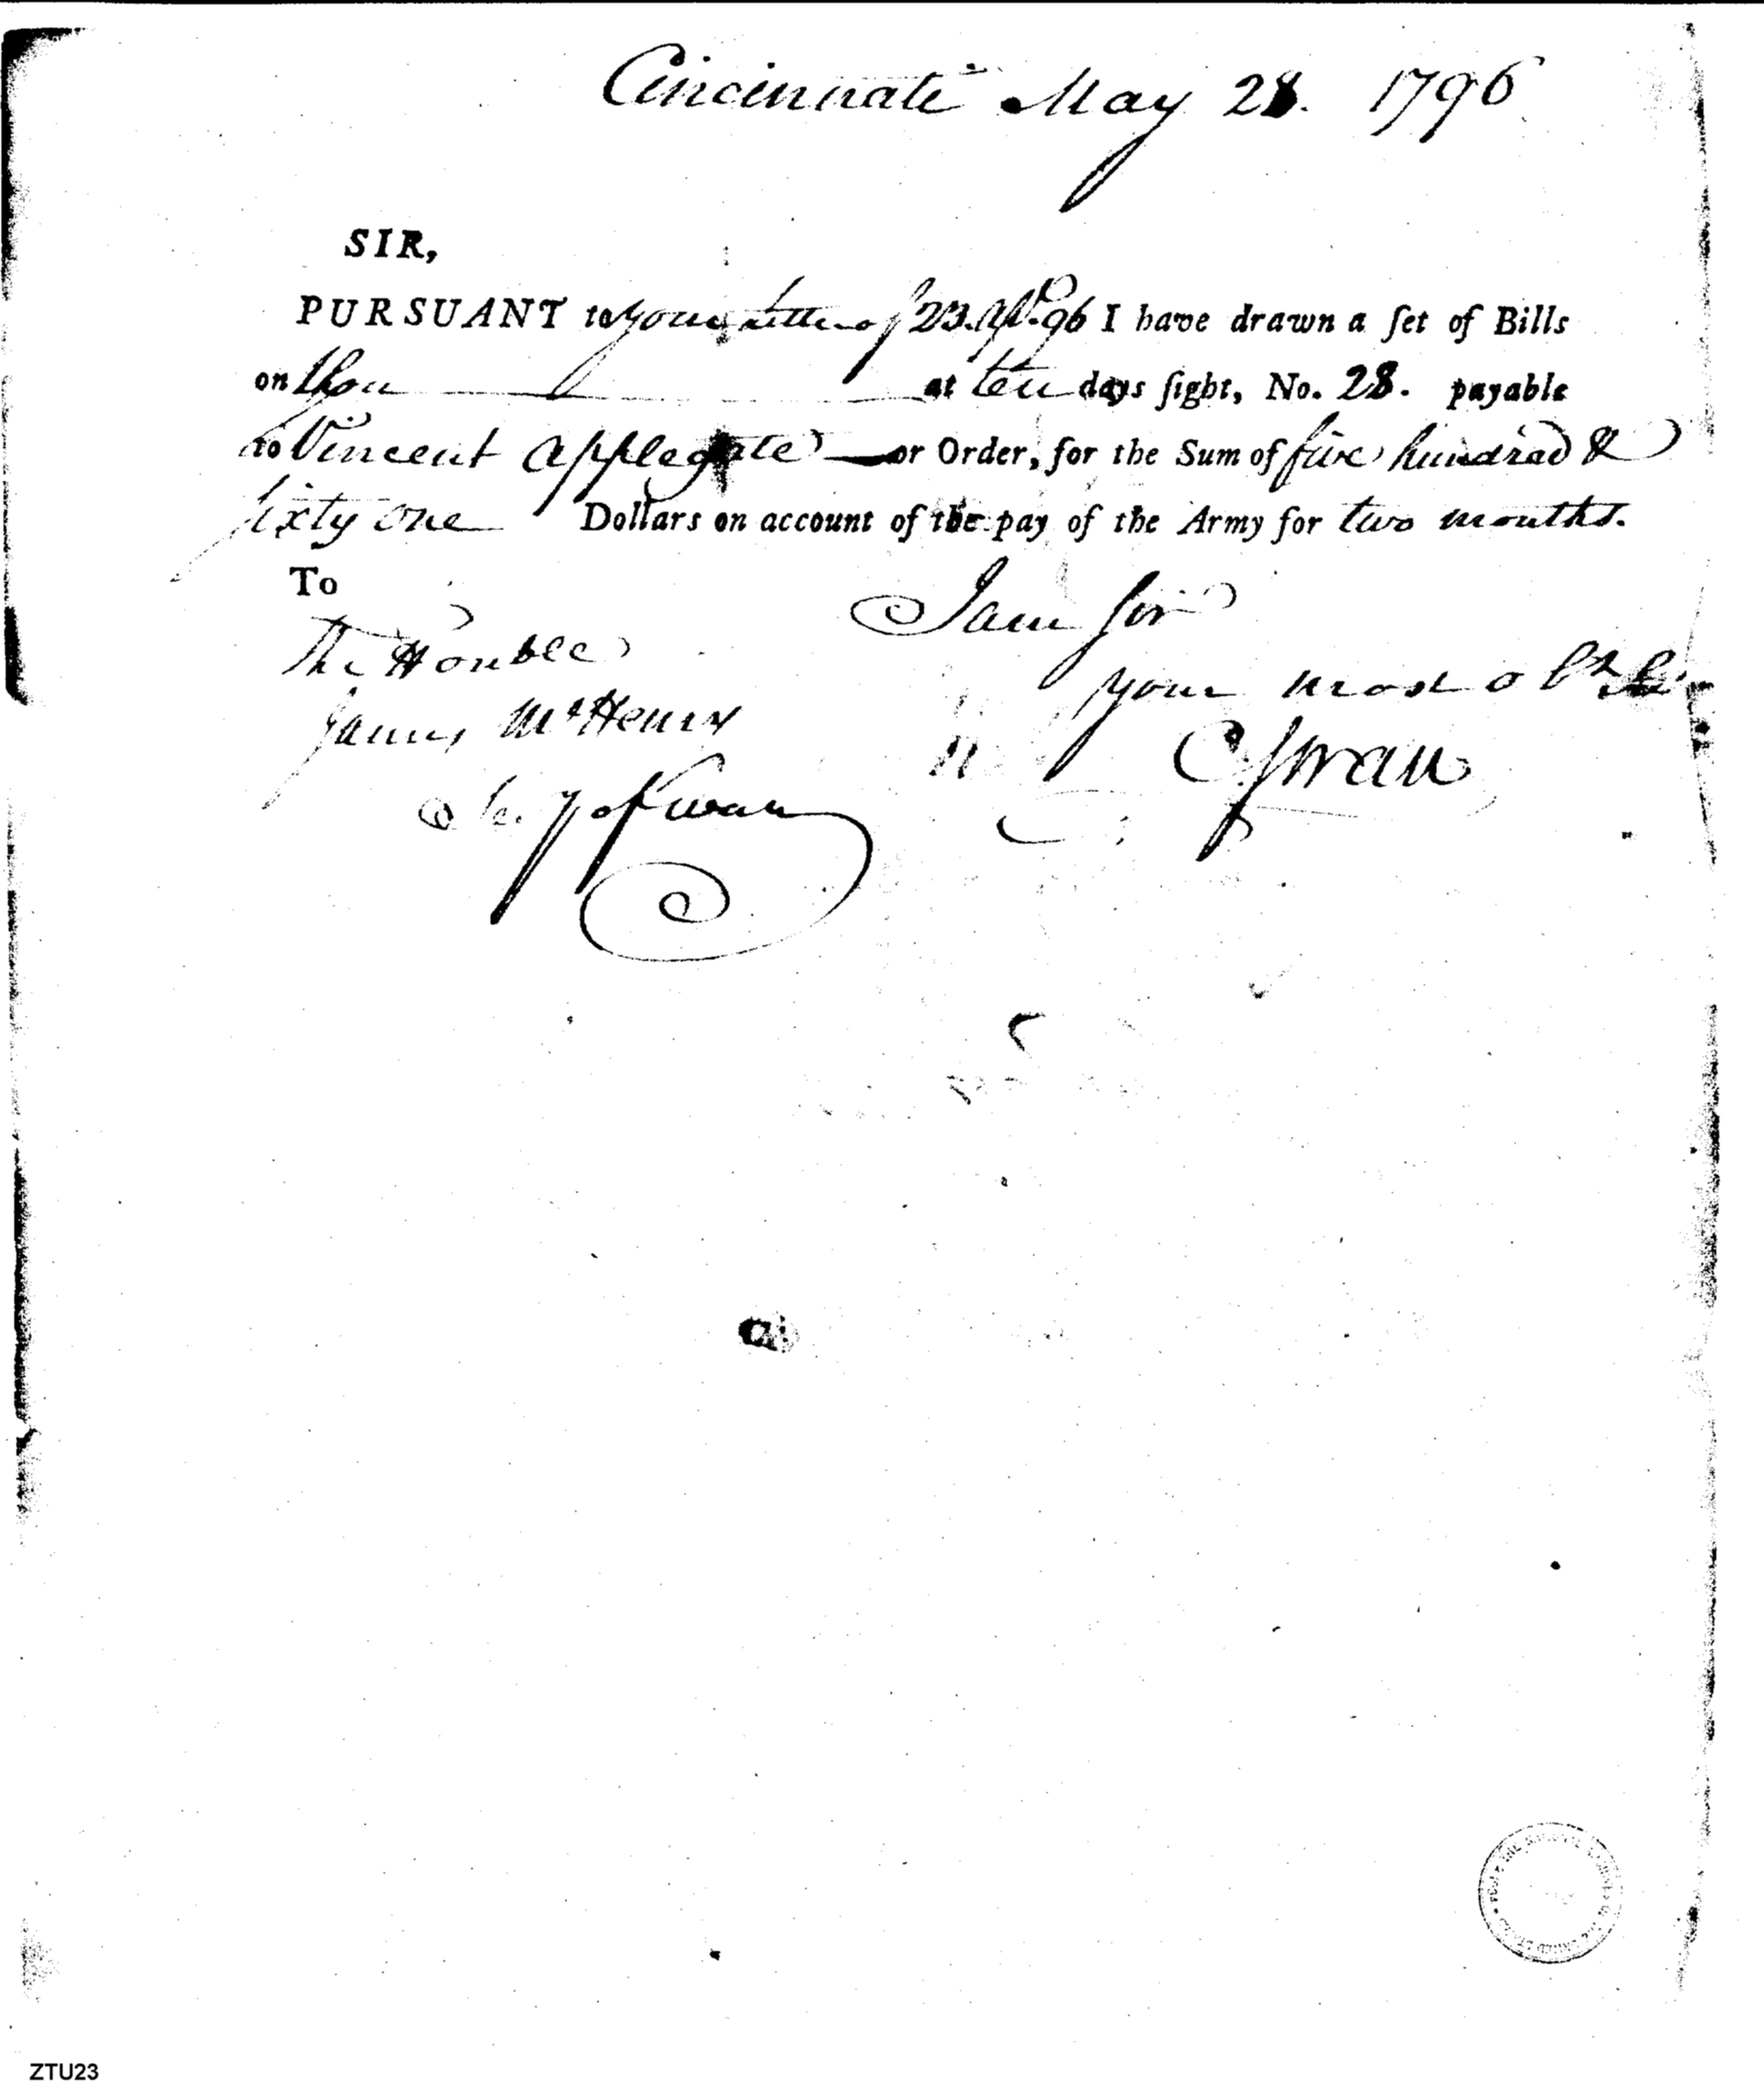 Cincinnati May 28. 1796
SIR,
PURSUANT to your letter of 23. Apl. 96 I have drawn a ſet of Bills
on you at ten days ſight, No. 28. payable
to Vincent Applegate or Order, for the Sum of five hundred &
sixty one Dollars on account of the pay of the Army for two months.
To
I am Sir
The Honble
your most obt
James McHenry
C Swan
Secy of War
ZTU23